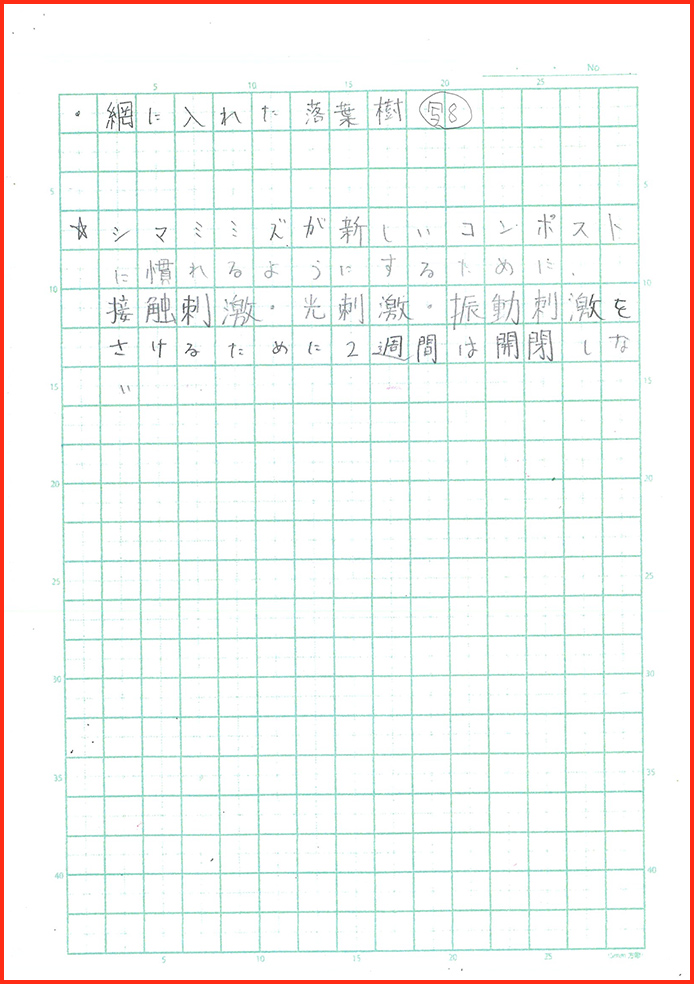 No
・網に入れた落葉樹 写8
☆シマミミズが新しいコンポスト
に慣れるようにするために、
接触刺激・光刺激・振動刺激を
さけるために2週間は開閉しな
い